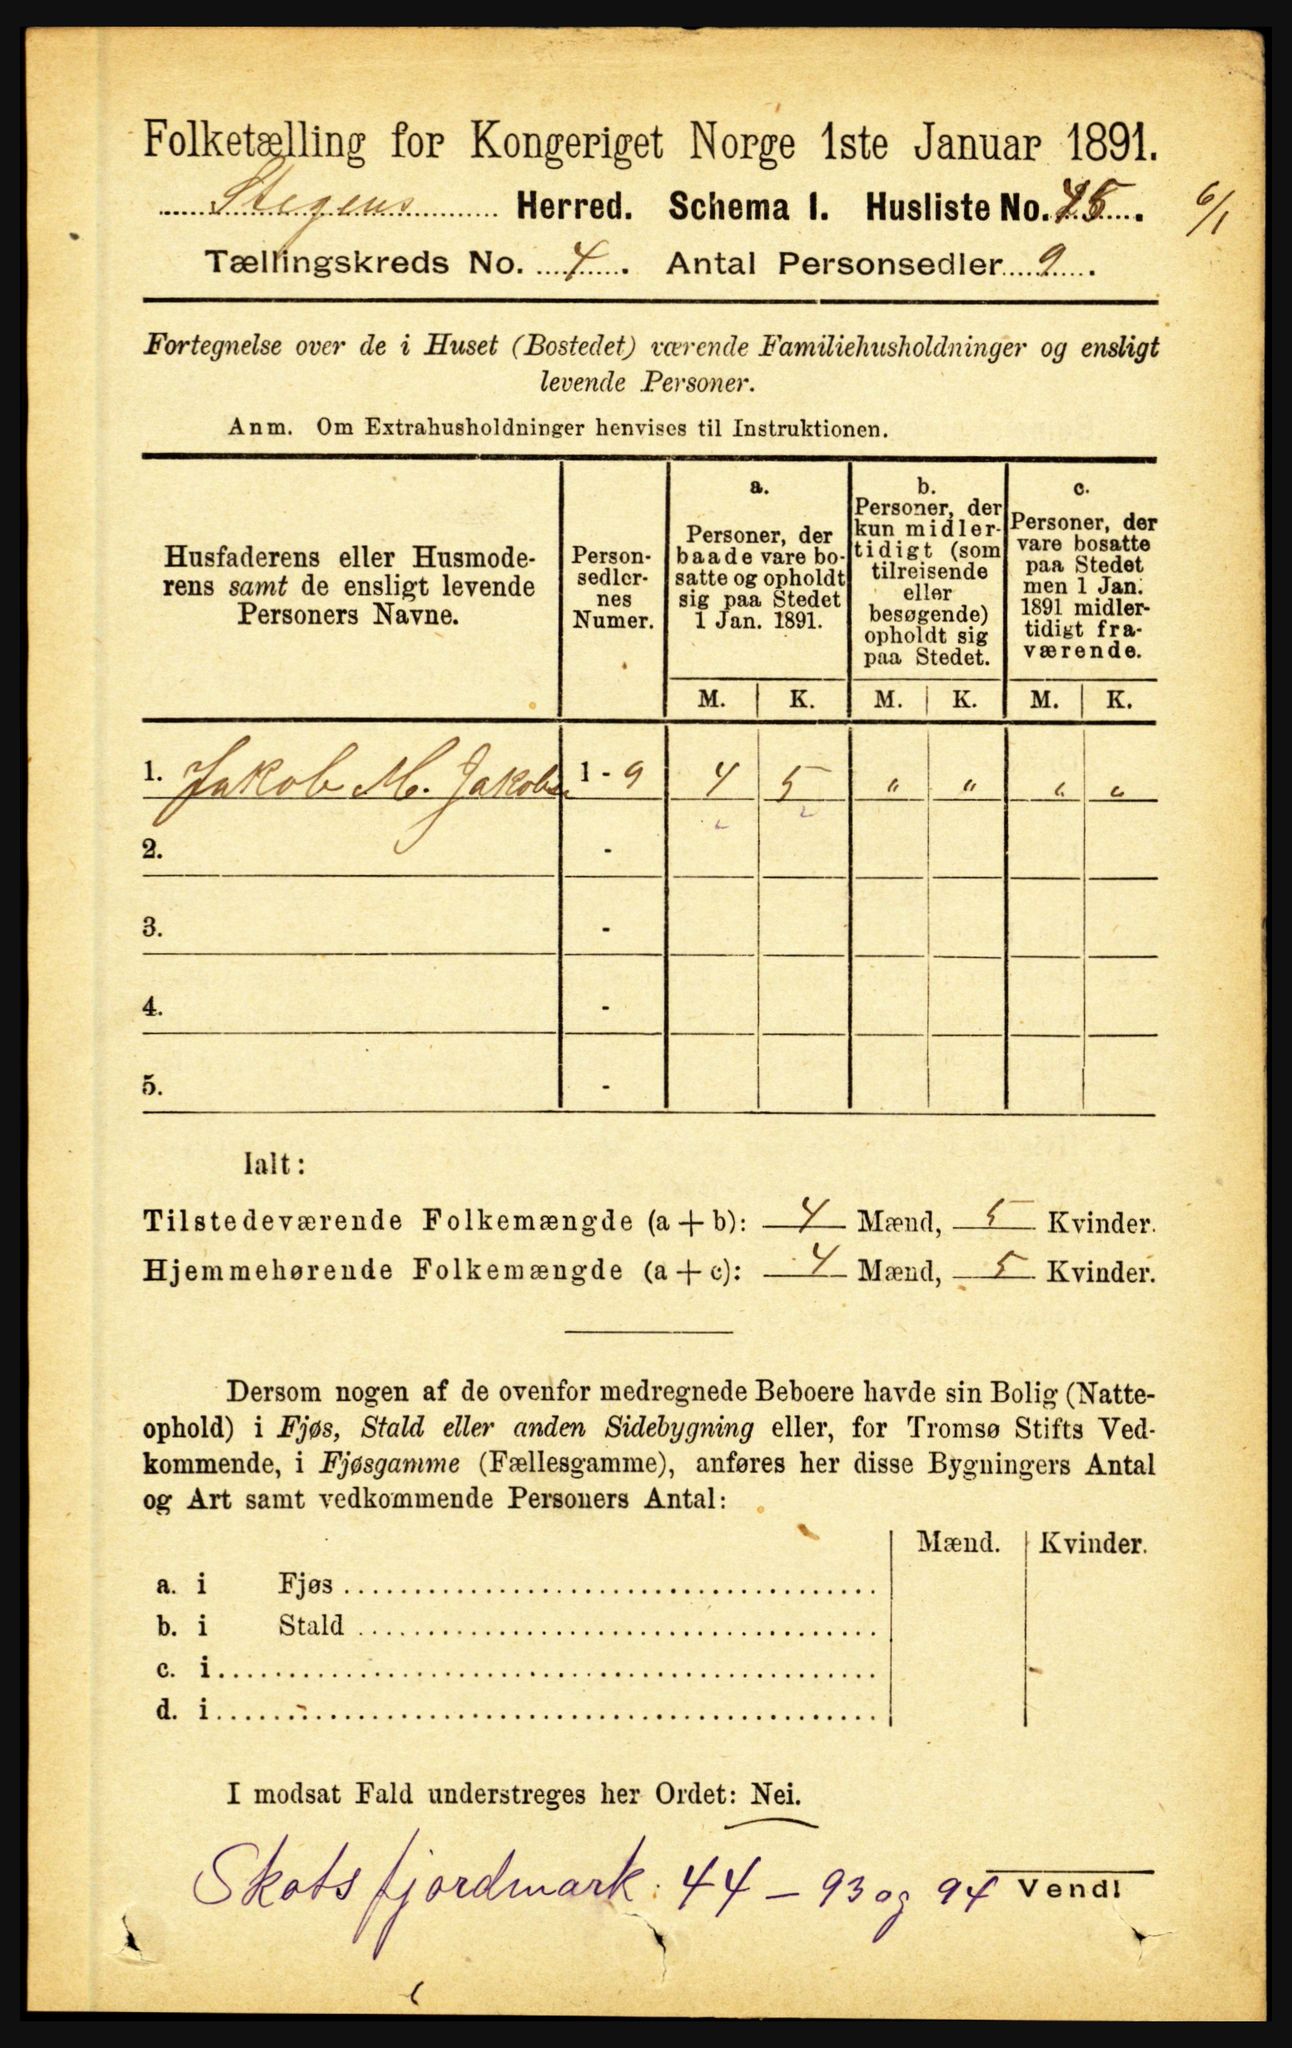 Folketælling for Kongeriget Norge 1ste Januar 1891.
Stegens Herred. Schema I. Husliste No. 45. 6/1
Tællingskreds No. 4. Antal Personsedler 9.
Fortegnelse over de i Huset (Bostedet) værende Familiehusholdninger og ensligt
levende Personer.
Anm. Om Extrahusholdninger henvises til Instruktionen.
Husfaderens eller Husmode-
rens samt de ensligt levende
Personers Navne.
Person-
sedler-
nes
Numer.
a.
Personer, der
baade vare bo-
satte og opholdt
sig paa Stedet
1 Jan. 1891.
b.
Personer, der
kun midler-
tidigt (som
tilreisende
eller
besøgende)
opholdt sig
paa Stedet.
c.
Personer, der
vare bosatte
paa Stedet
men 1 Jan.
1891 midler-
tidigt fra-
værende.
M. K. M. K. M. K.
1. Jakob M. Jakobsen 1 - 9 4 5 " " " "
2. -
3. -
4. -
5. -
Ialt:
Tilstedeværende Folkemængde (a + b): 4 Mænd, 5 Kvinder.
Hjemmehørende Folkemængde (a + c): 4 Mænd, 5 Kvinder.
Dersom nogen af de ovenfor medregnede Beboere havde sin Bolig (Natte-
ophold) i Fjøs, Stald eller anden Sidebygning eller, for Tromsø Stifts Ved-
kommende, i Fjøsgamme (Fællesgamme), anføres her disse Bygningers Antal
og Art samt vedkommende Personers Antal:
Mænd. Kvinder.
a. i Fjøs
b. i Stald
c. i
d. i
I modsat Fald understreges her Ordet: Nei.
Skotsfjordmark 44 – 93 og 94 Vend!